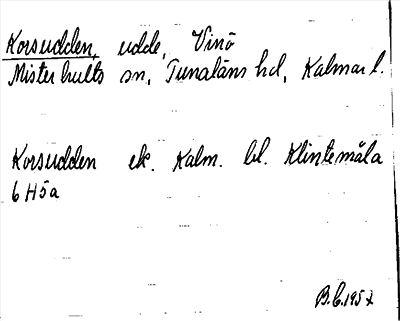 Korsudden, udde, Vinö
Misterhults sn, Tunaläns hd, Kalmar l.
Korsudden ek. Kalm. bl. Klintemåla
6 H 5a
B.C. 1957